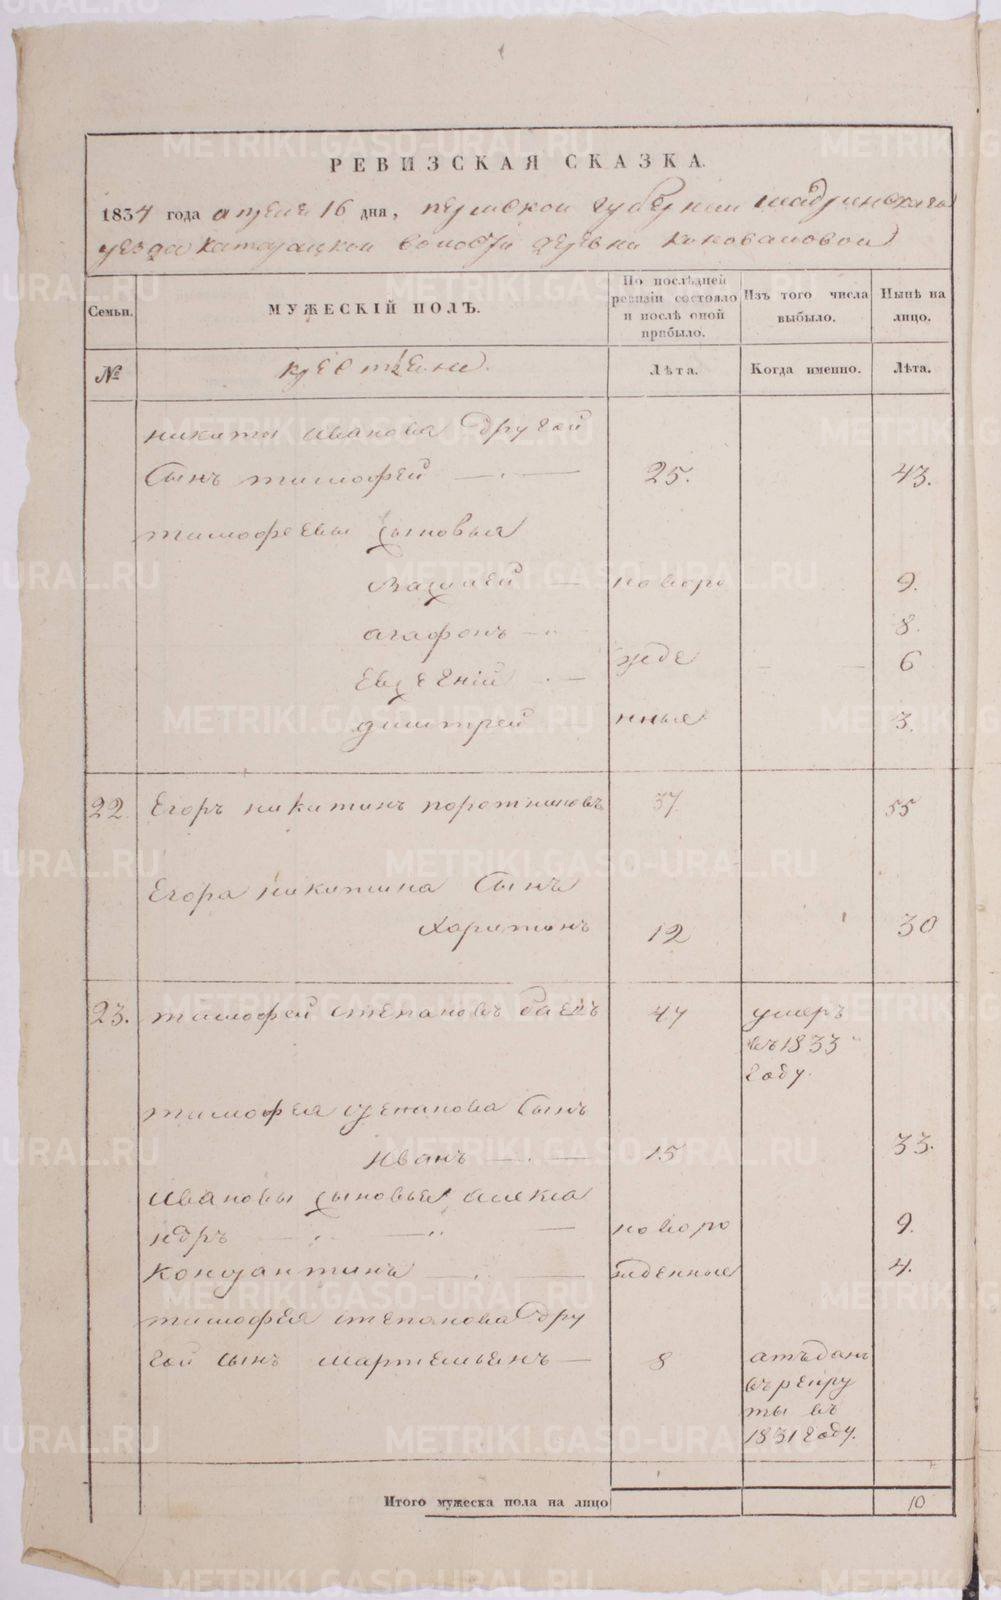 РЕВИЗСКАЯ СКАЗКА.
1834 года апреля 16 дня, пермской губернии шадринскаго
уезда катайцкой волости деревни коноваловой
Семьи.
МУЖЕСКІЙ ПОЛЪ.
По послѣдней ревизіи состояло и послѣ оной прибыло.
Изъ того числа выбыло.
Нынѣ на лицо.
№
крестьяне.
Лѣта.
Когда именно.
Лѣта.
никиты иванова другой
сынъ тимофей 25. 43.
тимофеевы сыновья
василей новоро 9.
агафонъ 8.
Евгений жде 6
димитрей нные 3.
22. Егоръ никитинъ поротниковъ 37 55
Егора никитина сынъ
харитонъ 12 30
23. тимофей степановъ баевъ 47 умеръ
въ 1833
году.
тимофея степанова сынъ
иванъ 15 33.
ивановы сыновья алекса
ндръ новоро 9.
константинъ жденные 4.
тимофея степанова дру
гой сынъ мартемьенъ 8 атъданъ
въ рекру
ты въ
1831 году.
Итого мужеска пола на лицо 10
METRIKI.GASO-URAL.RU